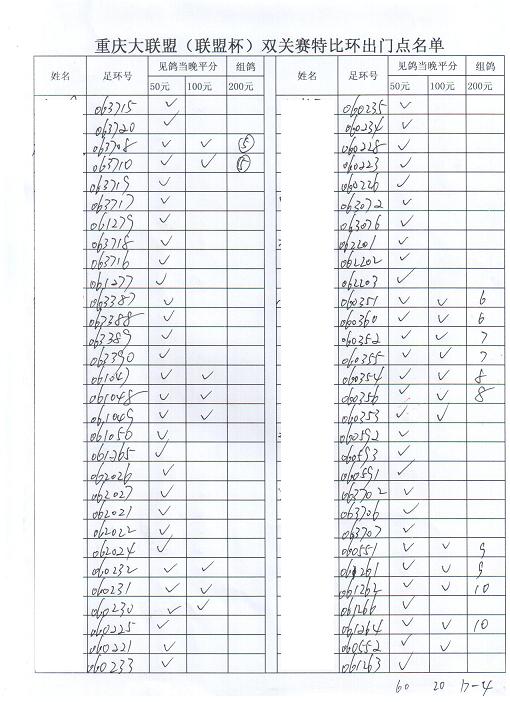 重庆大联盟（联盟杯）双关赛特比环出门点名单
姓名 足环号 见鸽当晚平分 组鸽 姓名 足环号 见鸽当晚平分 组鸽
50元 100元 200元 50元 100元 200元
063715 ✓ 060235 ✓
063720 ✓ 060234 ✓
063708 ✓ ✓ ⑤ 060228 ✓
063710 ✓ ✓ ⑤ 060223 ✓
063719 ✓ 060226 ✓
063717 ✓ 063072 ✓
061279 ✓ 063076 ✓
063718 ✓ 062201 ✓
063716 ✓ 062202 ✓
061277 ✓ 062203 ✓
063387 ✓ 060351 ✓ ✓ 6
063388 ✓ 060360 ✓ ✓ 6
063389 ✓ 060352 ✓ ✓ 7
063390 ✓ 060355 ✓ ✓ 7
061047 ✓ ✓ 060354 ✓ ✓ 8
061048 ✓ ✓ 060356 ✓ ✓ 8
061049 ✓ ✓ 060353 ✓ ✓
061050 ✓ 060592 ✓
061265 ✓ 060593 ✓
062026 ✓ 060591 ✓
062027 ✓ 063702 ✓
062021 ✓ 063706 ✓
062022 ✓ 063707 ✓
062024 ✓ 060551 ✓ ✓ 9
060232 ✓ ✓ 061261 ✓ ✓ 9
060231 ✓ ✓ 061262 ✓ ✓ 10
060230 ✓ ✓ 061266 ✓
060225 ✓ 061264 ✓ ✓ 10
060221 ✓ 060552 ✓ ✓
060233 ✓ 061263 ✓
60 20